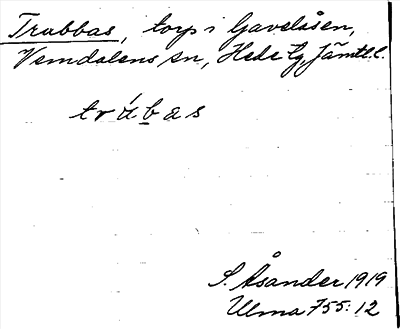 Trabbas, torp i Gavelåsen,
Vemdalens sn, Hede tg, Jämtl. l.
trábas
S. Åsander 1919
Ulma 755:12